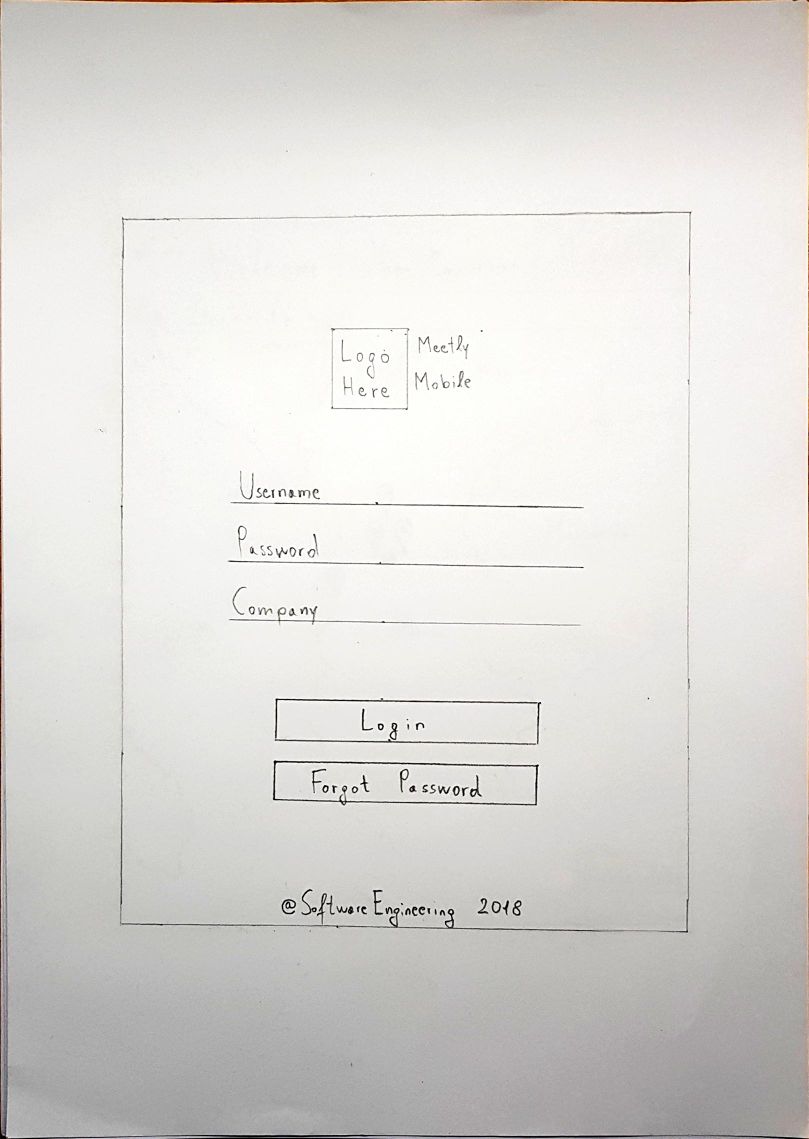 Logo
Here
Meetly
Mobile
Username
Password
Company
Login
Forgot Password
@Software Engineering 2018